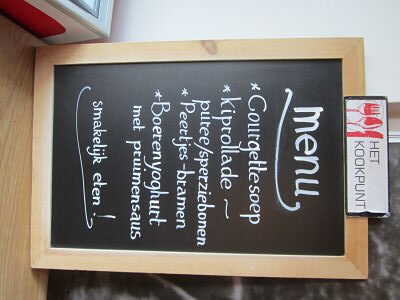 HET
KOOKPUNT
menu
* Courgettesoep
* kiprollade ~
puree/sperziebonen
* Peertjes-bramen
* Boerenyoghurt
met pruimensaus
smakelijk eten!